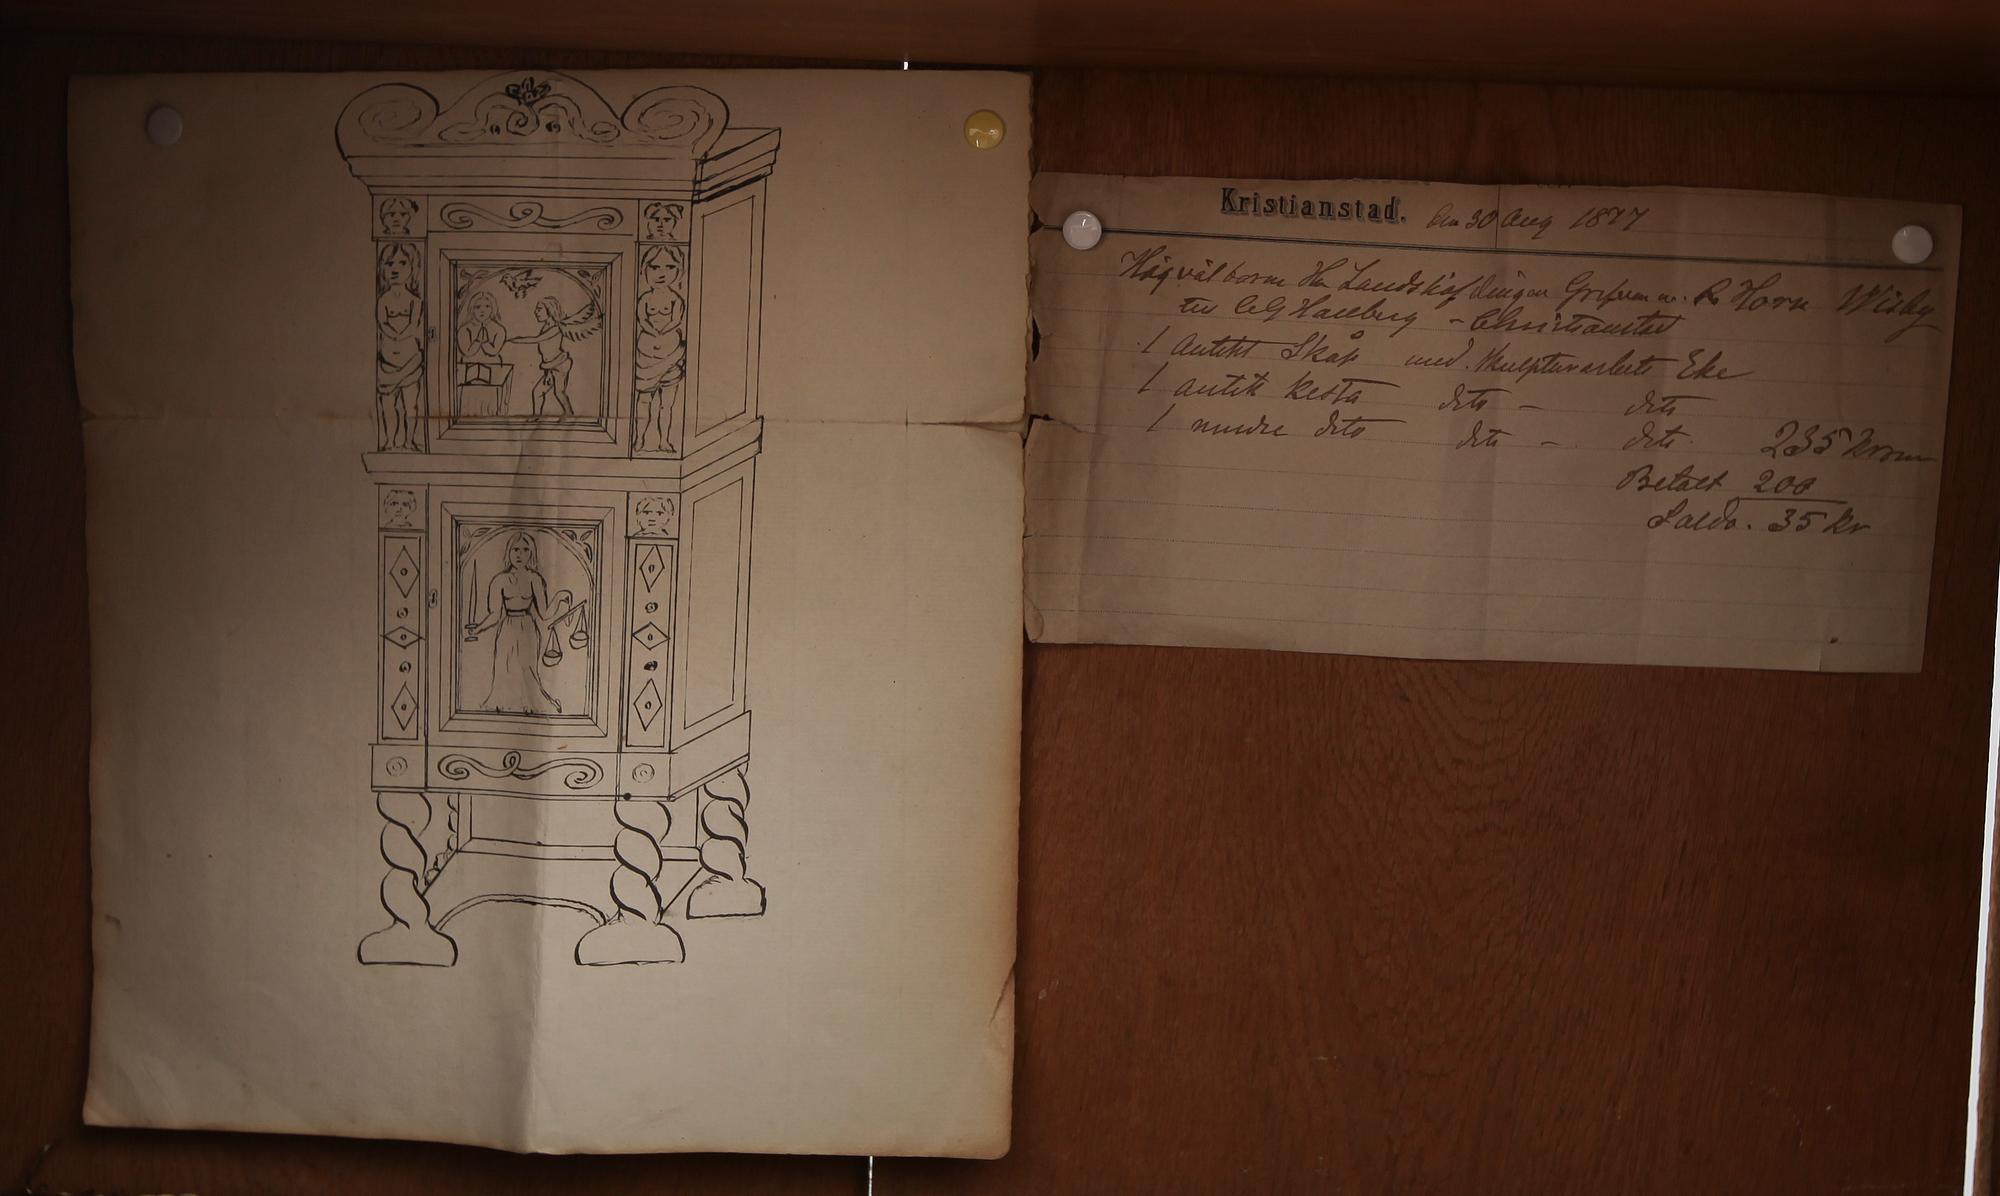 Kristianstad. den 30 Aug 1877
Högvälborne Hr Landshöfdingen Grefven m. R. Horn Wisby
till C G Hallberg - Christianstad
1 Antikt Skåp med Skulpturarbete Eke
1 antik kista dito - dito
1 mindre dito dito - dito 235 kronor
Betalt 200
Saldo. 35 kr